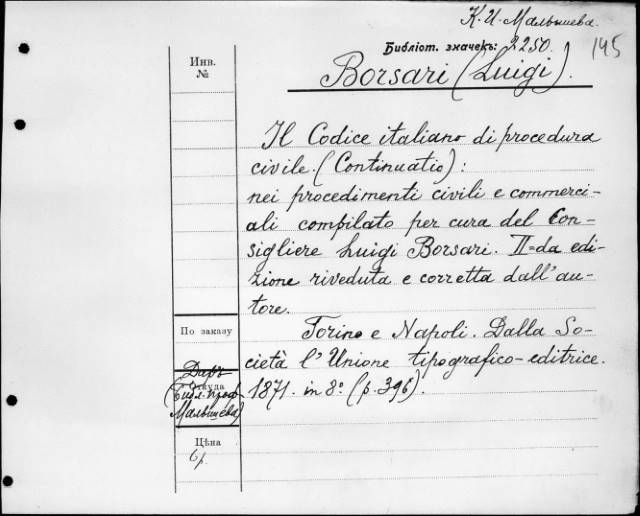 К. И. Малышева.
Библіот. значекъ: 2250.
145
Инв.
№
Borsari (Luigi).
Il Codice italiano di procedura
civile. (Continuatio):
nei procedimenti civili e commerci-
ali compilato per cura del Con-
sigliere Luigi Borsari. II=da edi-
zione riveduta e corretta dall'au-
tore.
По заказу
Torino e Napoli. Dalla So-
cietà l'Unione tipografico-editrice.
1871. in 8º. (p. 396).
Даръ
Откуда
(Библ. проф.
Малышева)
Цѣна
6р.